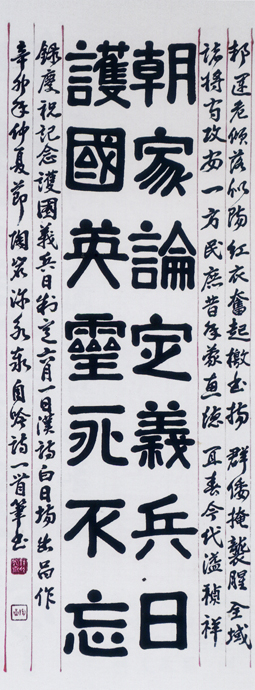 邦運危傾落似陽 紅衣奮起檄書揚 群倭掩襲腥全域
諸將守攻安一方 民庶昔年蒙惠德 耳孫今代溢禎祥
朝家論定義兵日
護國英靈死不忘
錄慶祝記念護國義兵日制定六月一日漢詩白日場出品作
辛卯年仲夏節 陶岩 沈永 自吟詩一首筆書